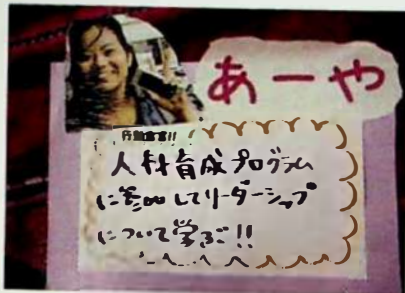 あーや
行動宣言!!
人材育成プログラム
に参加してリーダーシップ
について学ぶ!!